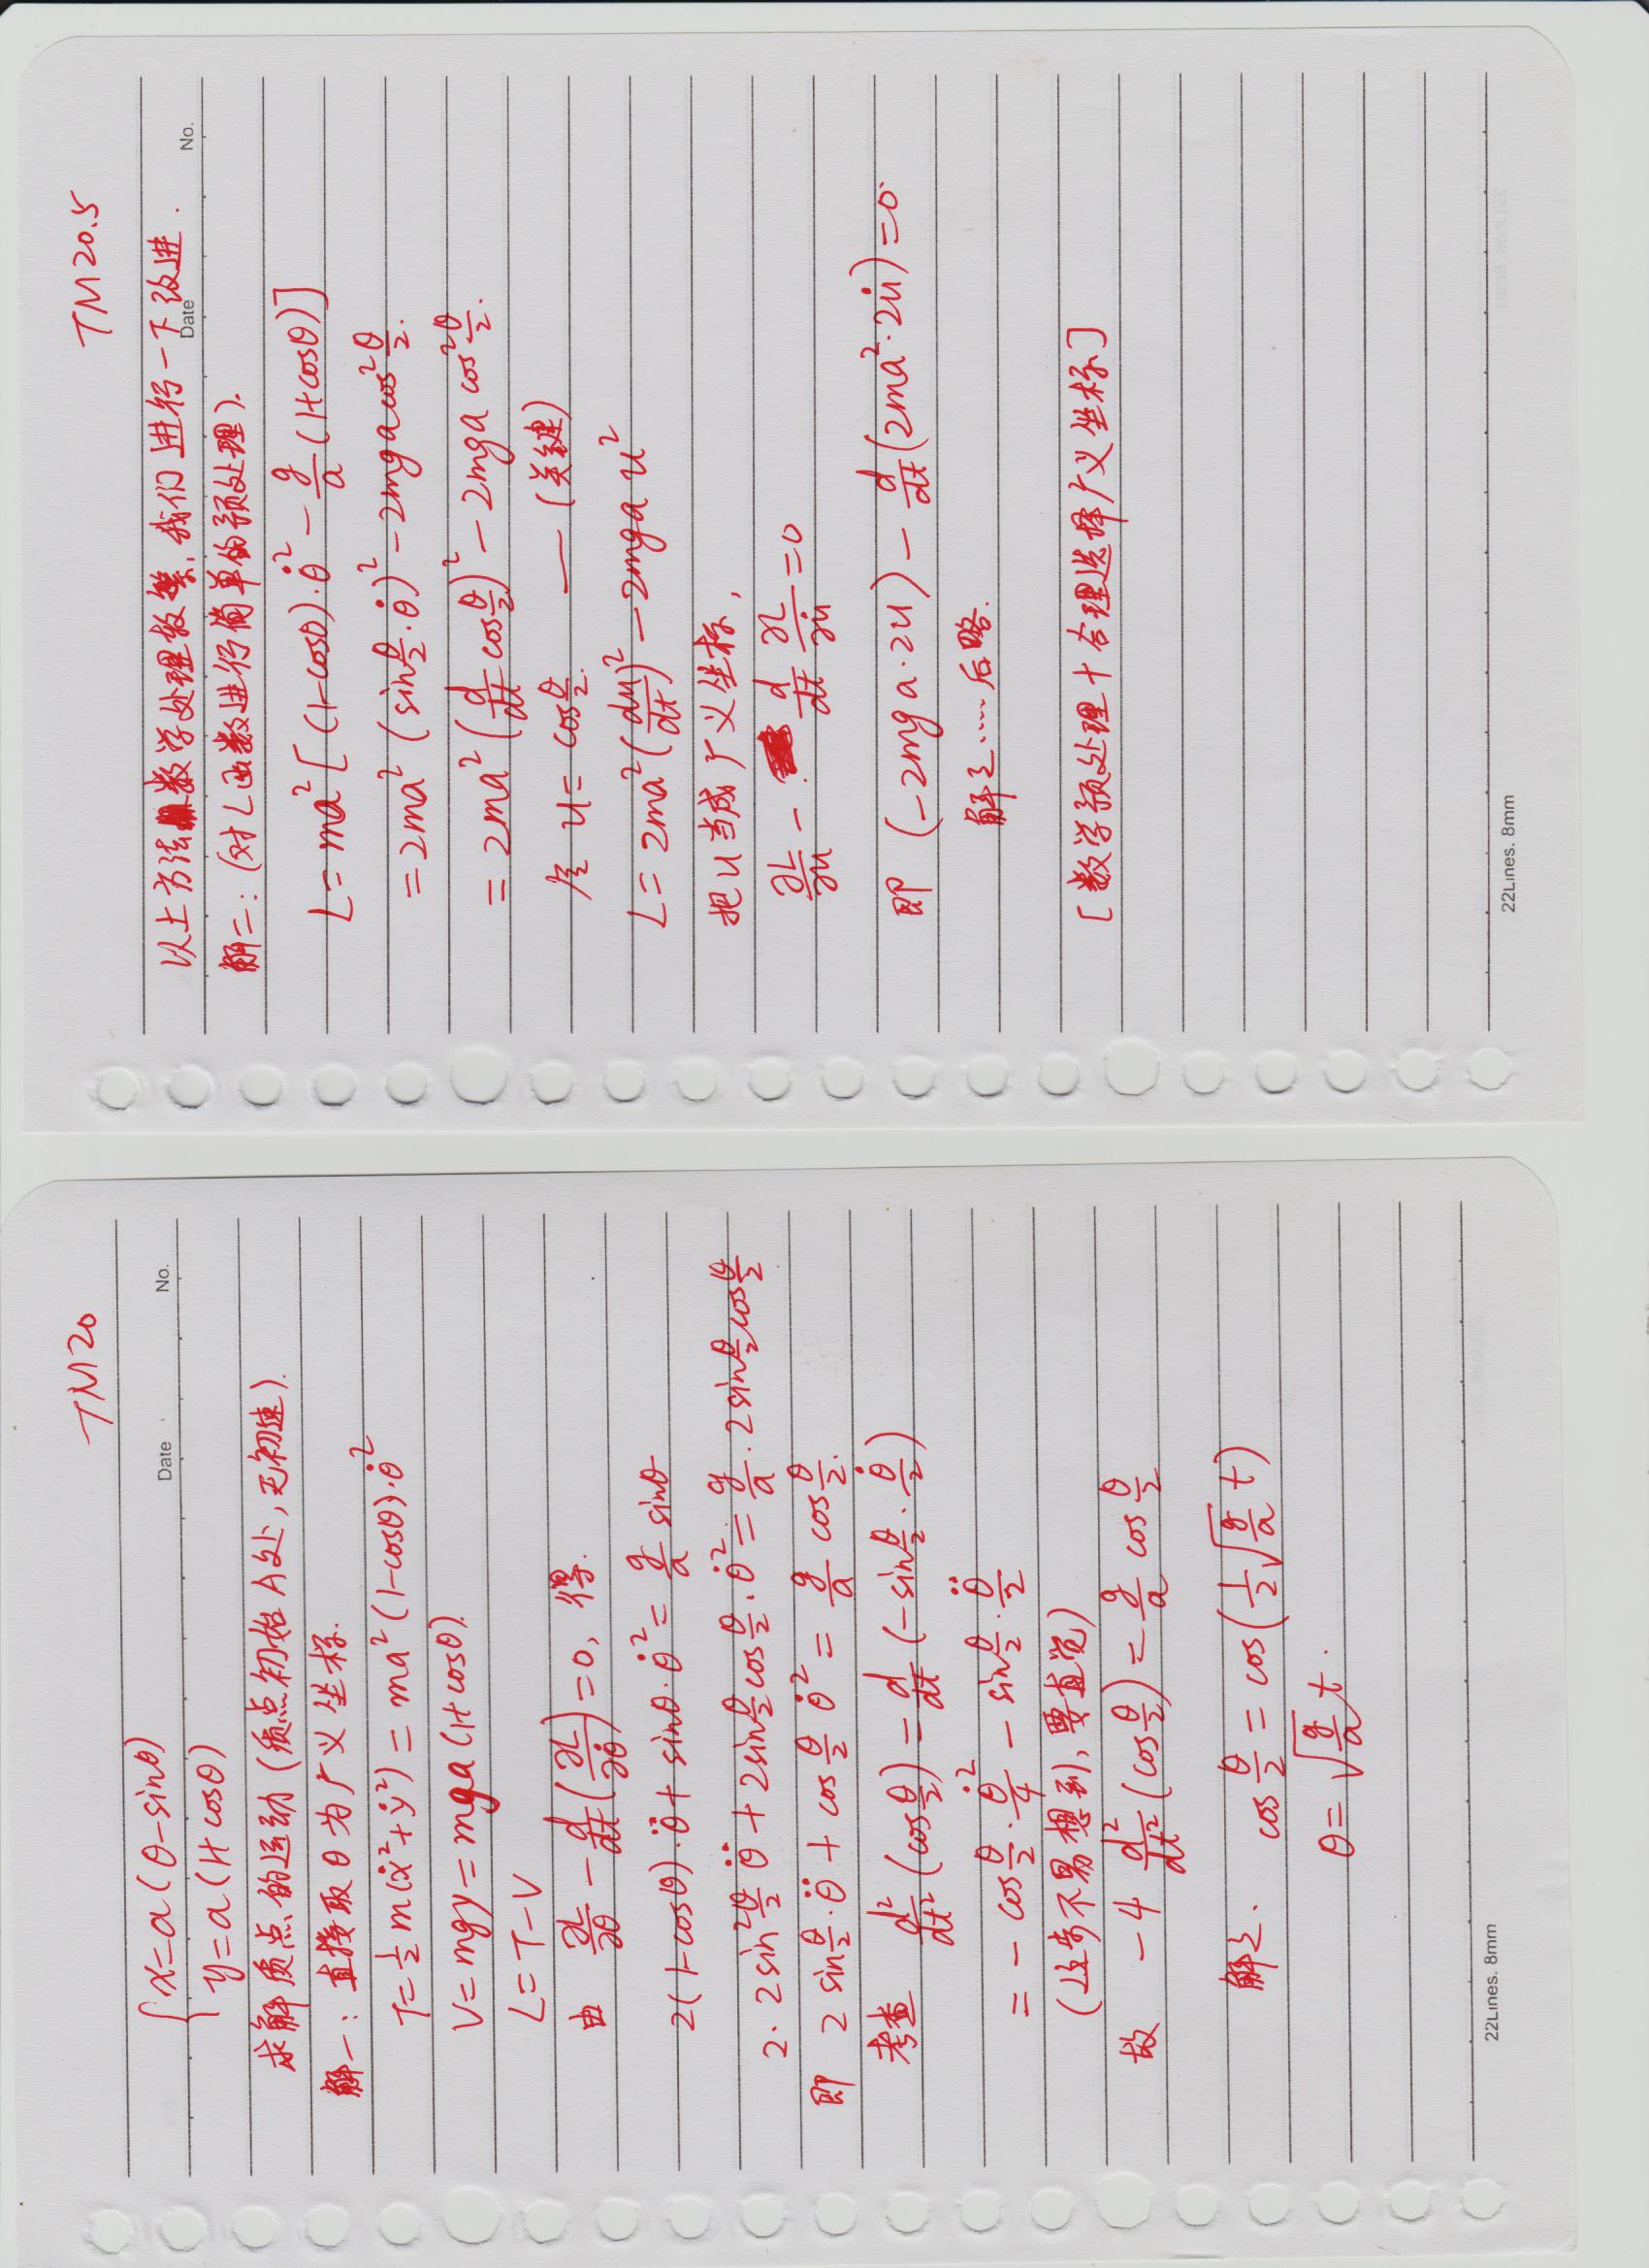 TM20
Date No.
{x=a(θ-sinθ)
y=a(1+cosθ)
求解质点的运动(质点初始A处,无初速).
解一:直接取θ为广义坐标.
T=½m(ẋ²+ẏ²)=ma²(1-cosθ)·θ̇²
V=mgy=mga(1+cosθ).
L=T-V
由 ∂L/∂θ - d/dt(∂L/∂θ̇)=0, 得.
2(1-cosθ)·θ̈+sinθ·θ̇²=g/a sinθ
2·2sin²θ/2 θ̈+2sinθ/2cosθ/2·θ̇²=g/a·2sinθ/2cosθ/2
即 2sinθ/2·θ̈+cosθ/2 θ̇²=g/a cosθ/2.
考查 d²/dt²(cosθ/2)=d/dt(-sinθ/2·θ̇/2)
=-cosθ/2·θ̇²/4-sinθ/2·θ̈/2
(这步不易想到,要直觉)
故 -4 d²/dt²(cosθ/2)=g/a cosθ/2
解之. cosθ/2=cos(1/2√(g/a) t)
θ=√(g/a) t.
22Lines. 8mm
TM20.5
以上方法数学处理较繁,我们进行一下改进.
Date No.
解二:(对L函数进行简单的预处理).
L=ma²[(1-cosθ)·θ̇²-g/a(1+cosθ)]
=2ma²(sinθ/2·θ̇)²-2mgacos²θ/2.
=2ma²(d/dt cosθ/2)²-2mga cos²θ/2.
令 u=cosθ/2. —(关键)
L=2ma²(du/dt)²-2mga u²
把u当成广义坐标,
∂L/∂u - d/dt ∂L/∂u̇=0
即 (-2mga·2u)-d/dt(2ma²·2u̇)=0.
解之.....后略.
[数学预处理+合理选择广义坐标]
22Lines. 8mm